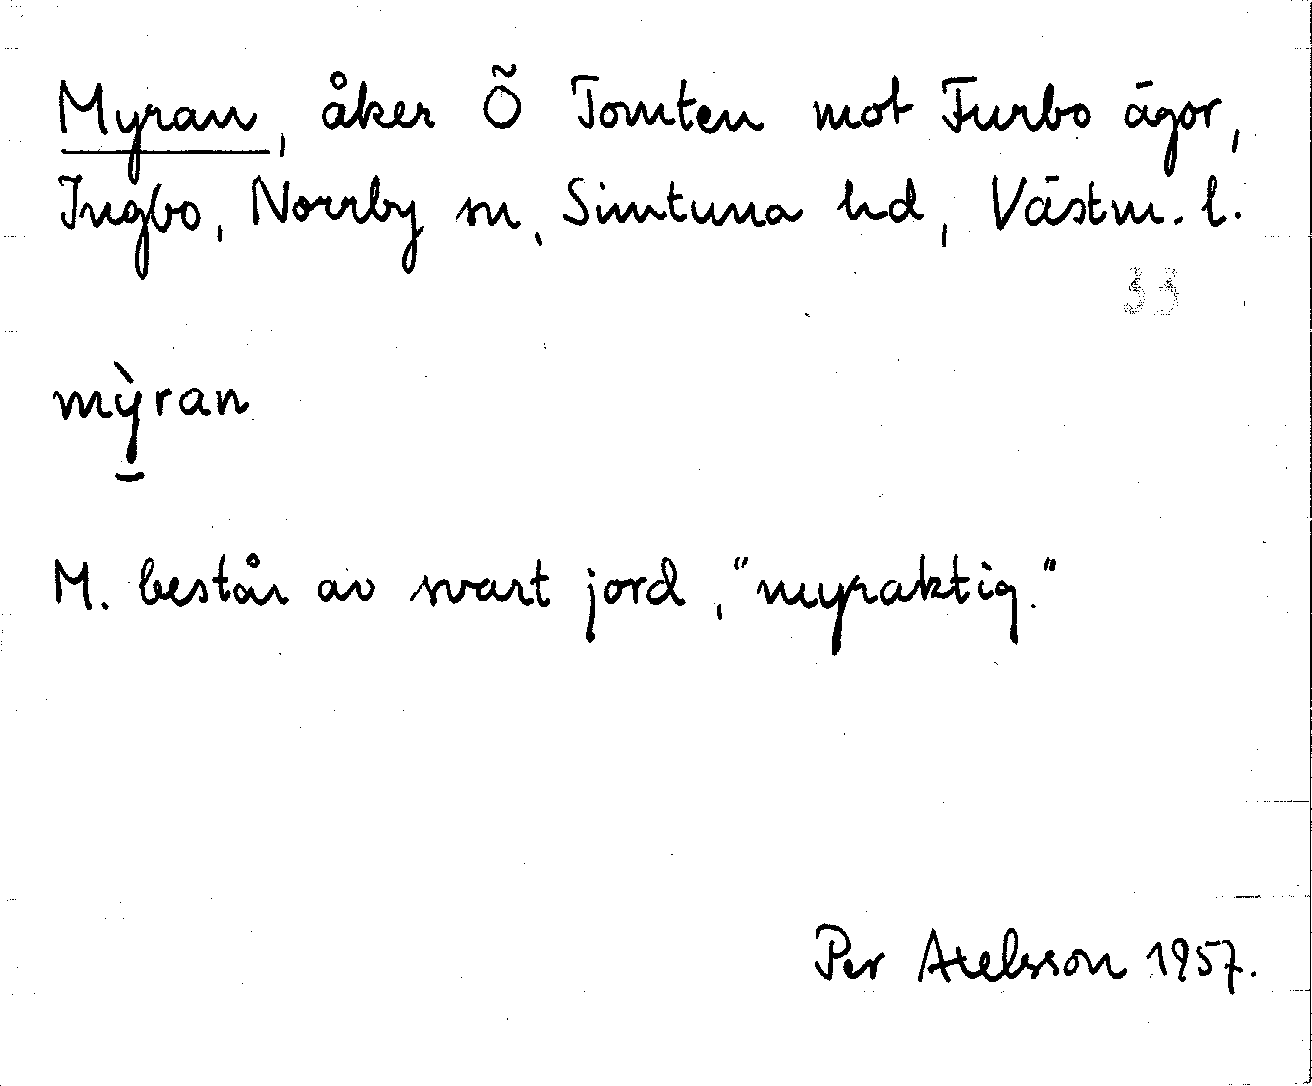 Myran, åker Ö Tomten mot Furbo ägor,
Ingbo, Norrby sn, Simtuna hd, Västm. l.
33
mỳran
M. består av svart jord, "myraktig."
Per Axelsson 1957.